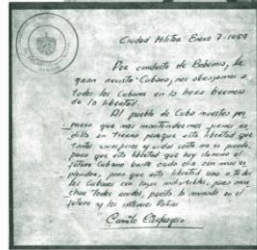 Ciudad Militar Enero 7-1959
Por conducto de Bohemia, la
gran revista Cubana, nos abrazamos a
todos los Cubanos en la hora hermosa
de la libertad.
Al pueblo de Cuba nuestra pro
mesa que nos mantendremos pierna
en tierra porque esta libertad que
tantos sacrificios y vidas costó no se pierda,
para que esta libertad que hoy ilumina el
futuro Cubano brille cada día con más es
plendor, para que esta libertad una a todos
los Cubanos con lazos indisolubles, para mar
char todos unidos, puesta la mirada en el
futuro y los intereses Patrios
Camilo Cienfuegos